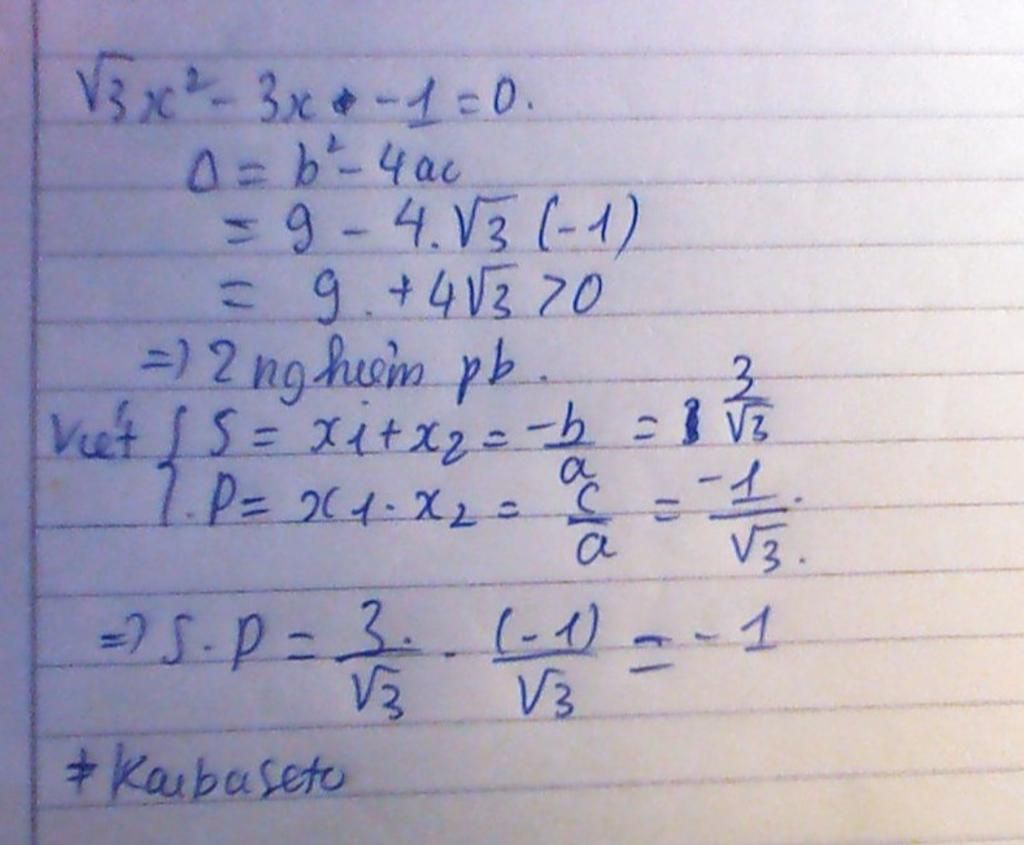 √3x² - 3x - 1 = 0.
Δ = b² - 4ac
= 9 - 4.√3 (-1)
= 9 + 4√3 > 0
=> 2 nghiệm pb.
Viét { S = x1 + x2 = -b/a = 3/√3
P = x1 . x2 = c/a = -1/√3.
=> S.P = 3/√3 . (-1)/√3 = -1
# Kaibaseto